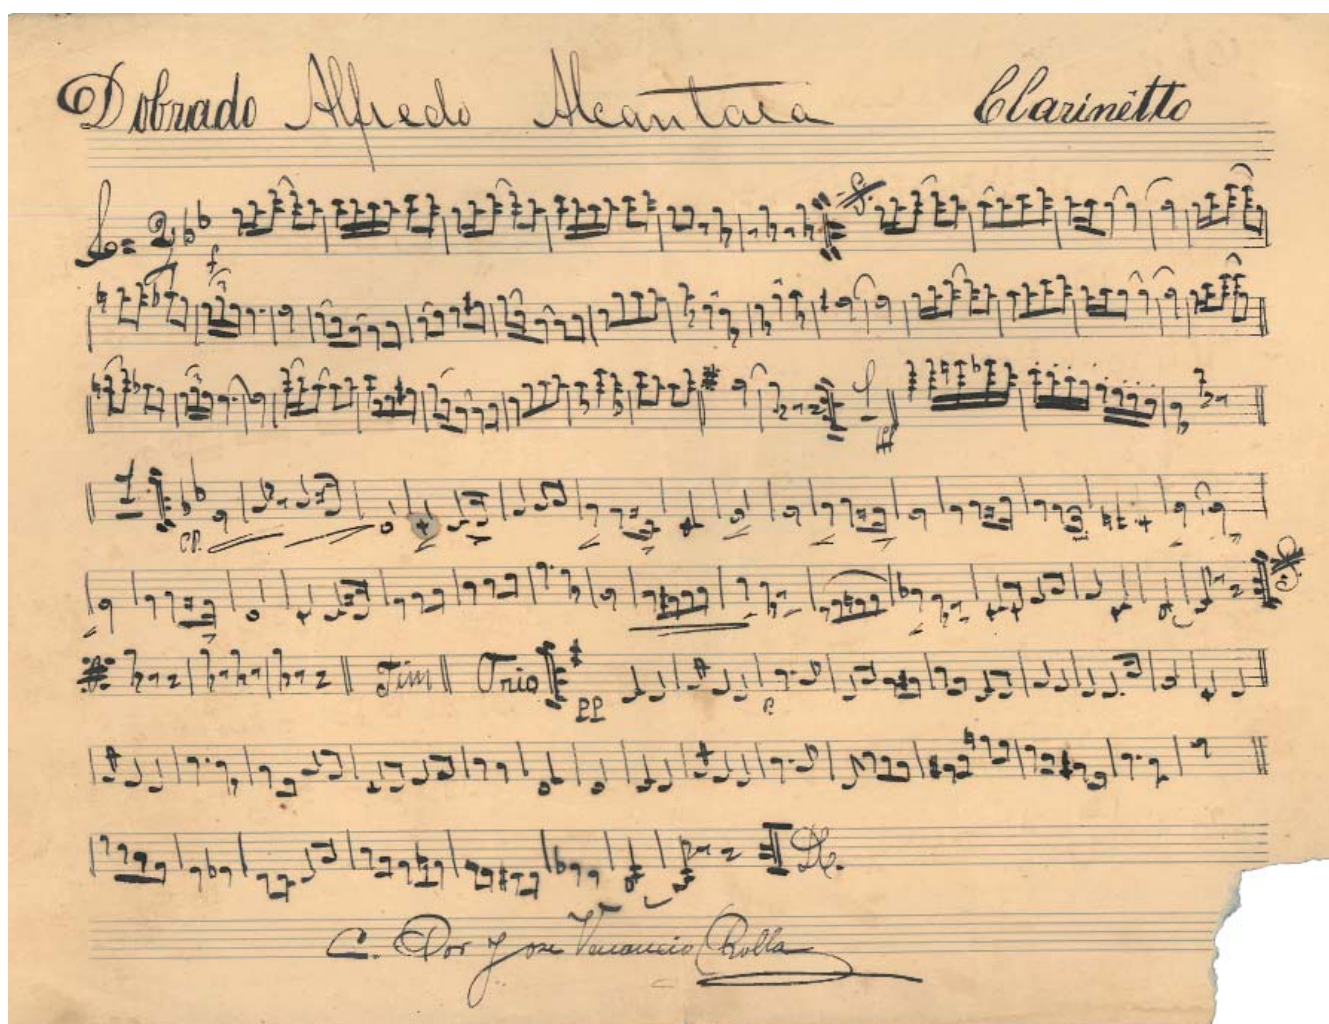 Dobrado Alfredo Alcantara Clarinêtto
f
1
PP.
Fim Trio PP P.
DC.
C. Por Jose Venancio Rolla